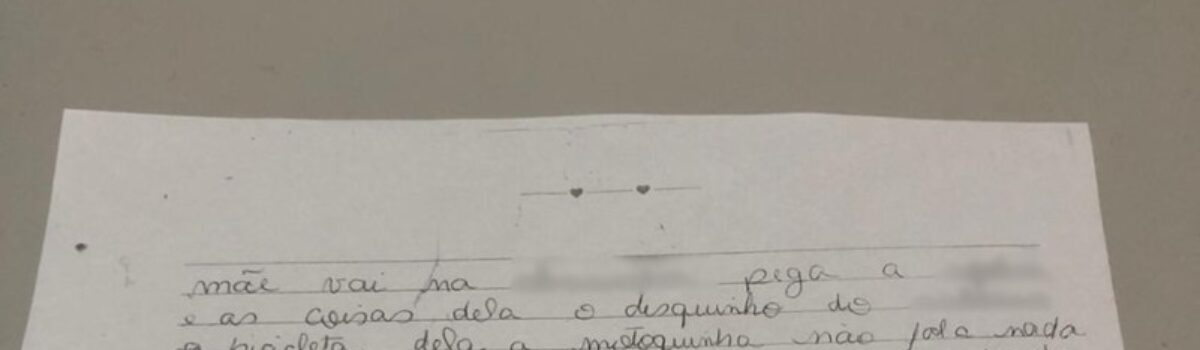 mãe vai na pega a
e as coisas dela o disquinho do
a bicicleta dela a motoquinha não fala nada